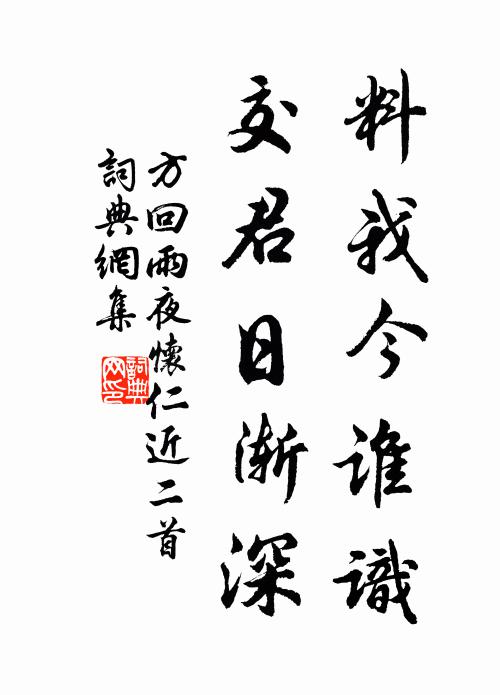 料我今谁識
交君日渐深
方回雨夜懷仁近二首
詞典網集
詞典网印